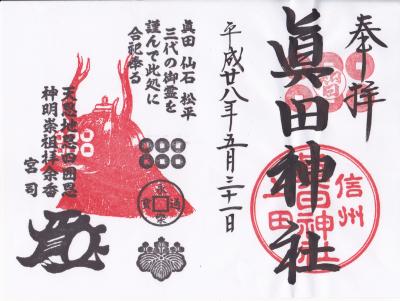 奉拝
眞田神社
信州
上田
眞田神社
平成廿八年五月三十一日
眞田 仙石 松平
三代の御霊を
謹んで此処に
合祀奉る
天恩地恩四囲恩
神明崇祖拝余香
宮司
永楽通寳